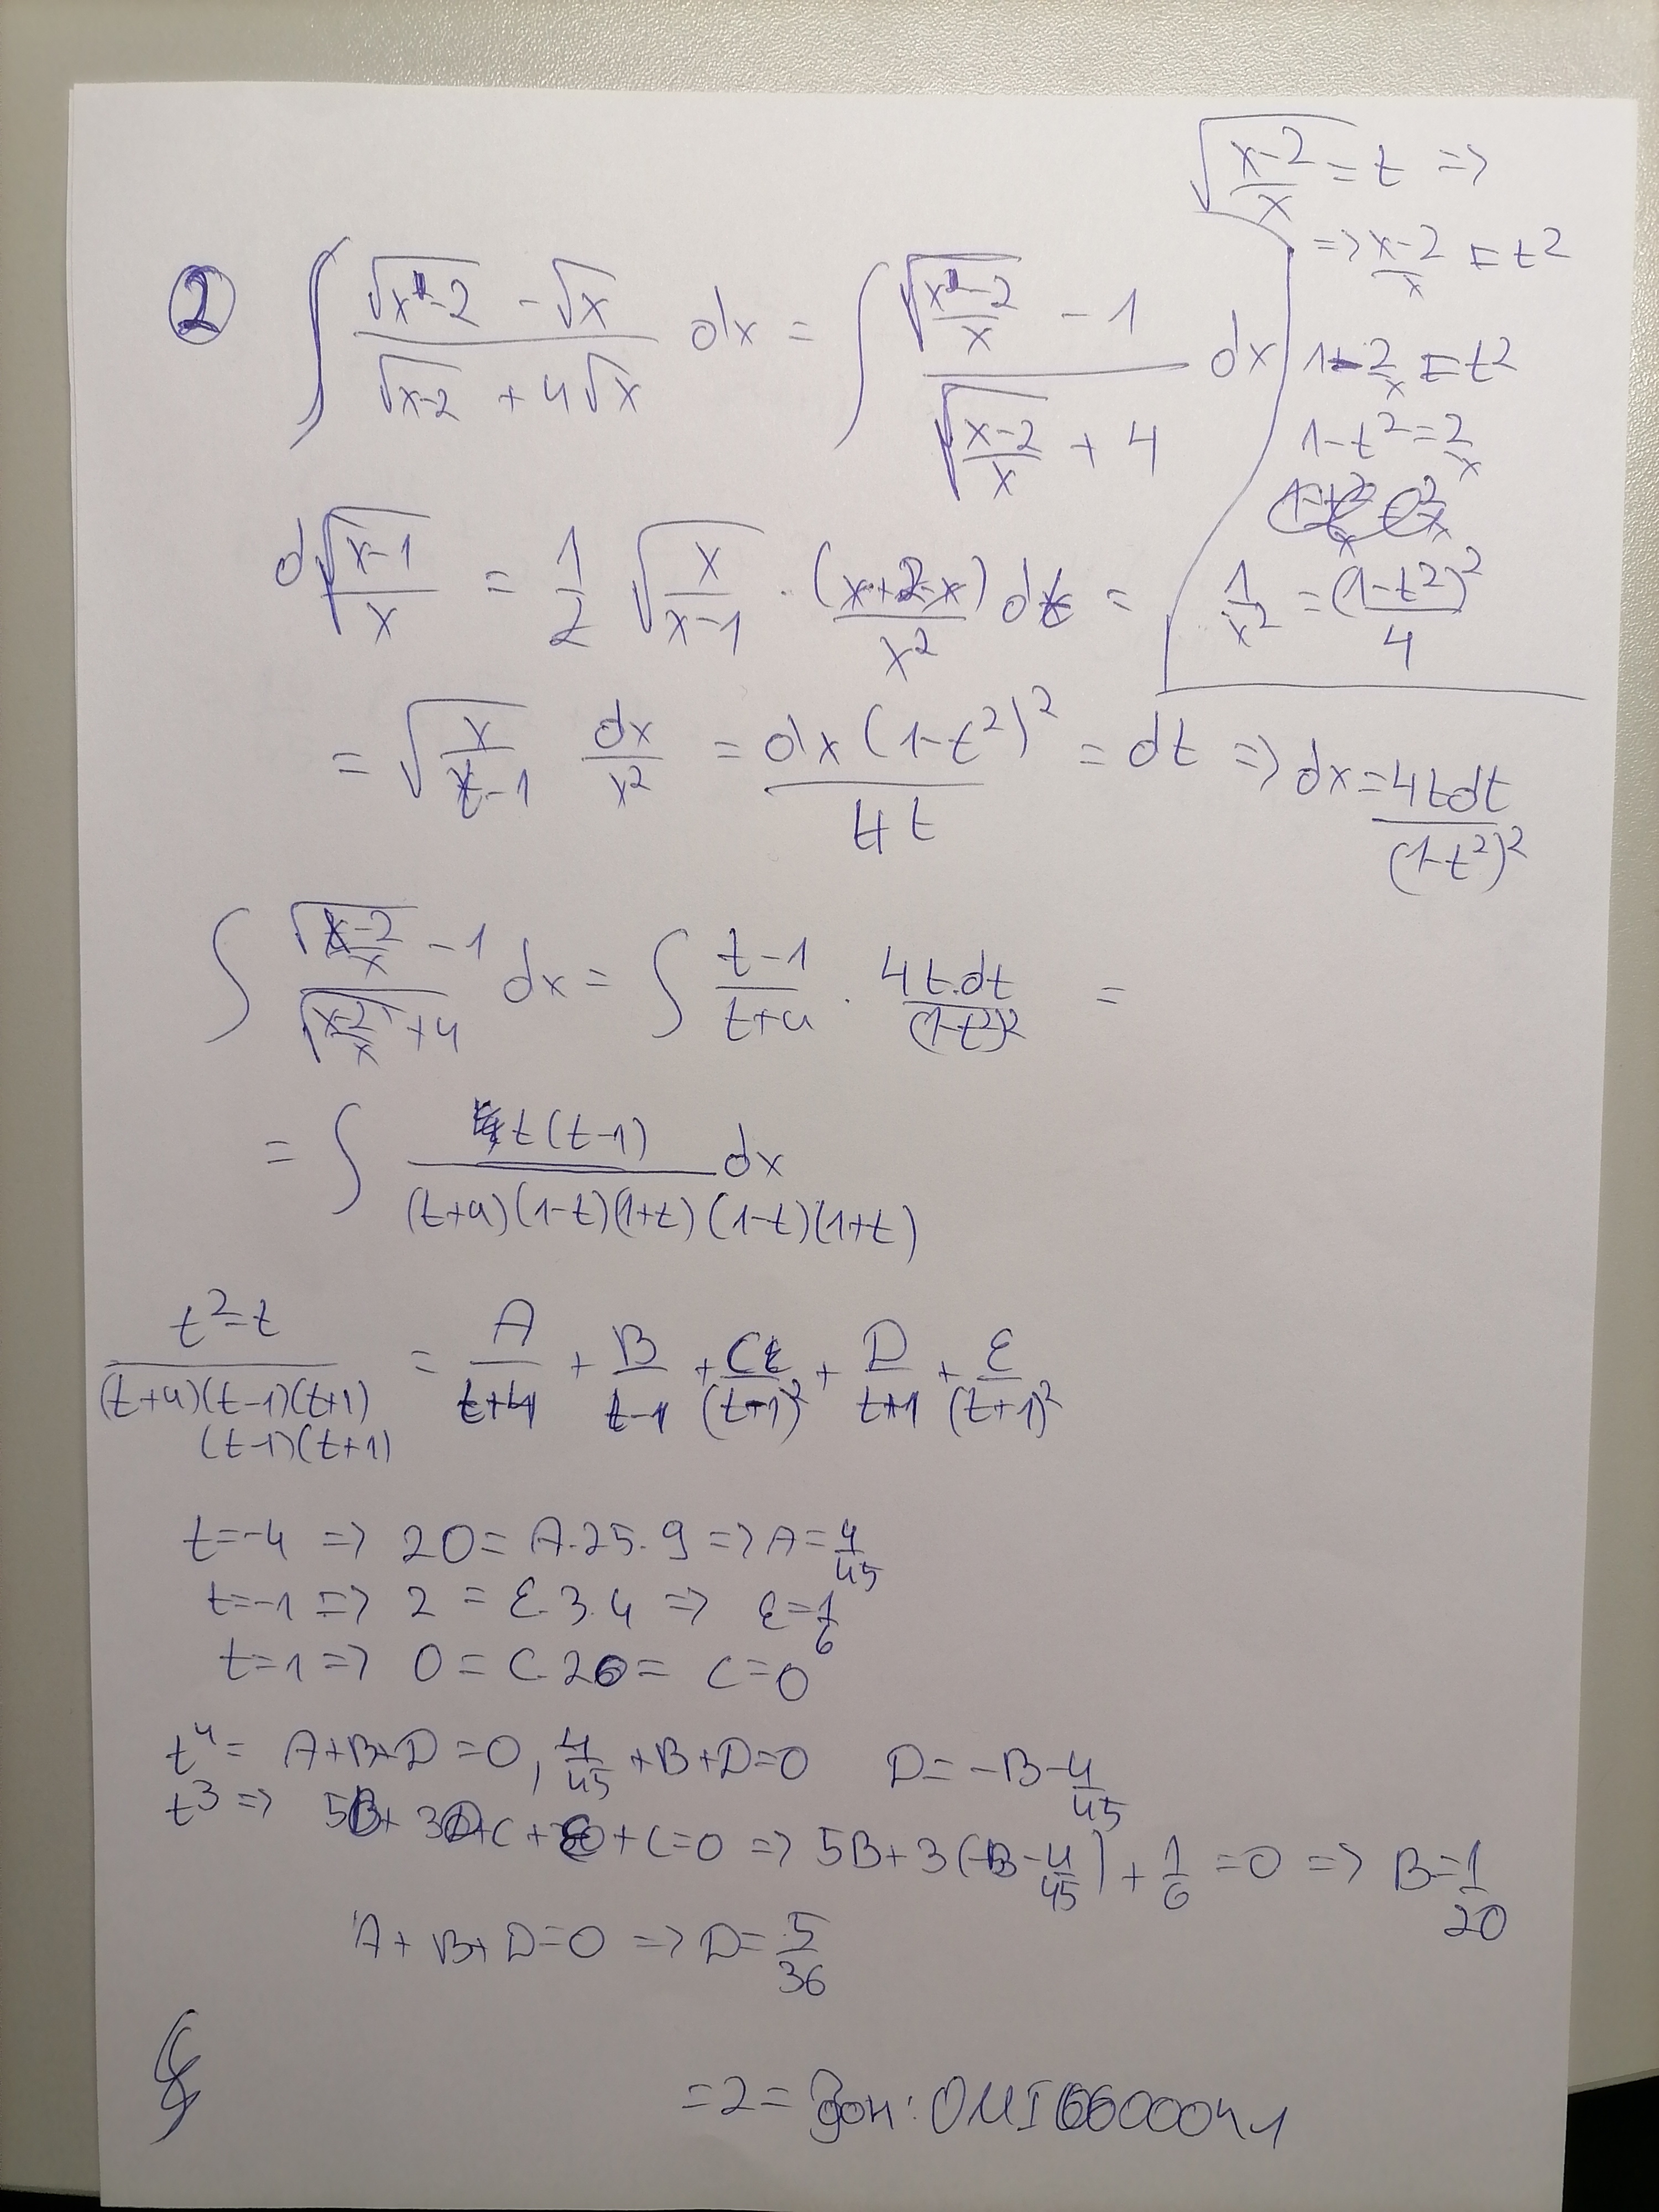 √((x-2)/x) = t =>
=> (x-2)/x = t²
② ∫ (√(x-2) - √x)/(√(x-2) + 4√x) dx = ∫ (√((x-2)/x) - 1)/(√((x-2)/x) + 4) dx
1-2/x = t²
1-t² = 2/x
1/x² = (1-t²)²/4
d√((x-1)/x) = 1/2 √(x/(x-1)) · (x+2-x)/x² dx =
= √(x/(x-1)) dx/x² = dx(1-t²)²/4t = dt => dx = 4tdt/(1-t²)²
∫ (√((x-2)/x) - 1)/(√((x-2)/x) + 4) dx = ∫ (t-1)/(t+4) · 4t.dt/(1-t²)² =
= ∫ t(t-1)/((t+4)(1-t)(1+t)(1-t)(1+t)) dx
(t²-t)/((t+4)(t-1)(t+1)(t-1)(t+1)) = A/(t+4) + B/(t-1) + C/(t-1)² + D/(t+1) + E/(t+1)²
t=-4 => 20 = A.25.9 => A = 4/45
t=-1 => 2 = E.3.4 => E = 1/6
t=1 => 0 = C.20 = C=0
t⁴ = A+B+D=0, 4/45 +B+D=0 D = -B-4/45
t³ => 5B+3D+C+E+C=0 => 5B+3(-B-4/45)+1/6 =0 => B=1/20
A+B+D=0 => D=5/36
=2= фон: 0MI6600041